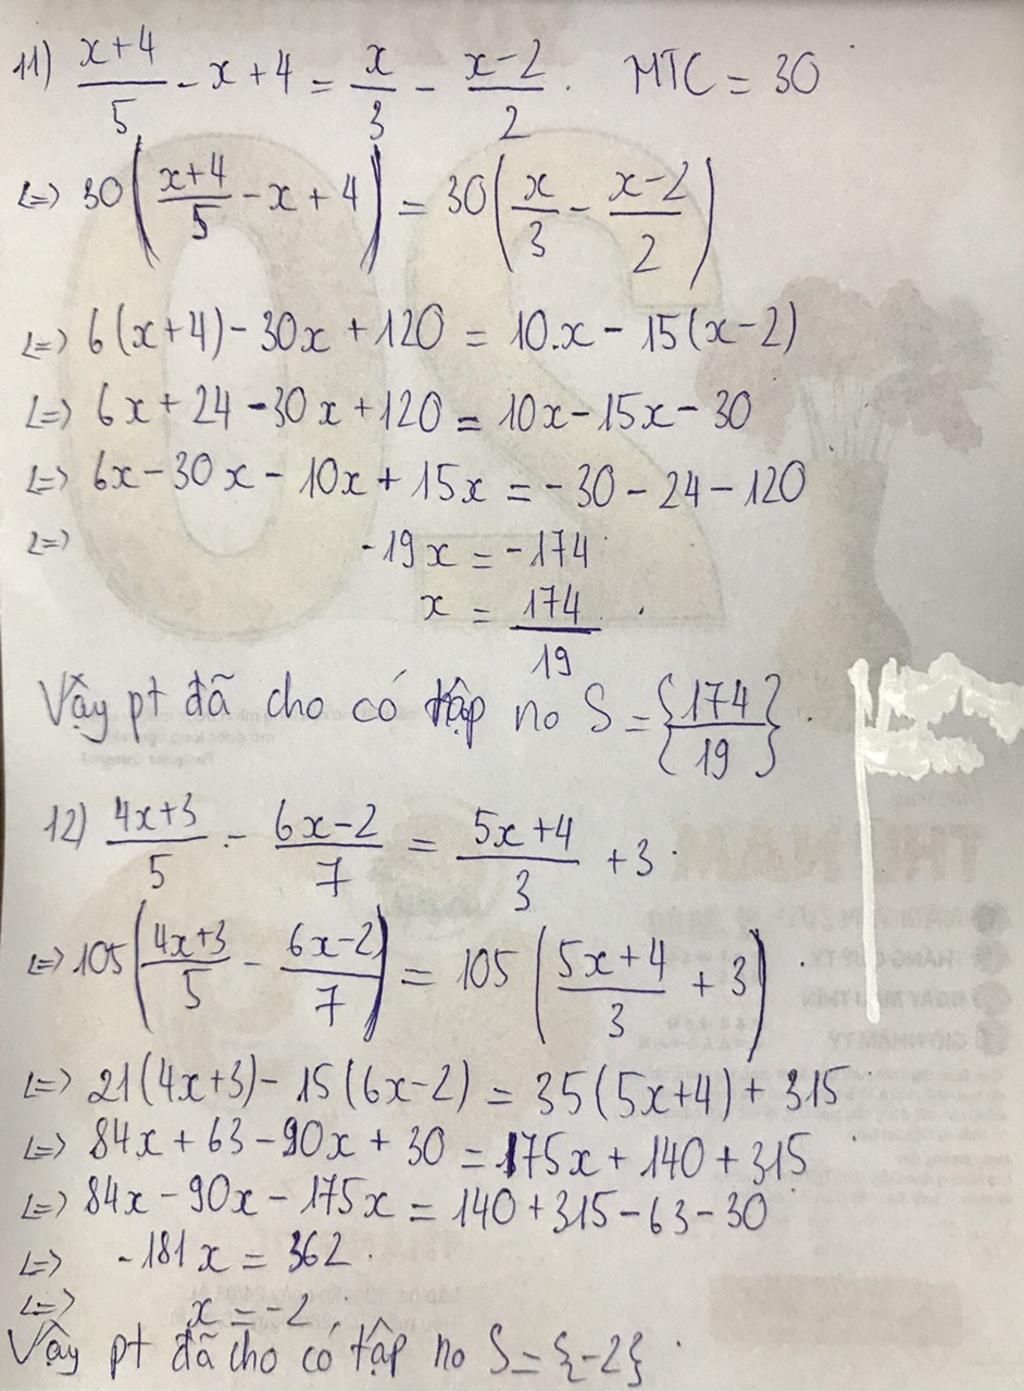 11) (x+4)/5 - x + 4 = x/3 - (x-2)/2 . MTC = 30
<=> 30((x+4)/5 - x + 4) = 30(x/3 - (x-2)/2)
<=> 6(x+4) - 30x + 120 = 10.x - 15(x-2)
<=> 6x + 24 - 30x + 120 = 10x - 15x - 30
<=> 6x - 30x - 10x + 15x = - 30 - 24 - 120
<=> -19x = -174
x = 174/19 .
Vậy pt đã cho có tập no S = {174/19} .
12) (4x+3)/5 - (6x-2)/7 = (5x+4)/3 + 3 .
<=> 105((4x+3)/5 - (6x-2)/7) = 105((5x+4)/3 + 3) .
<=> 21(4x+3) - 15(6x-2) = 35(5x+4) + 315
<=> 84x + 63 - 90x + 30 = 175x + 140 + 315
<=> 84x - 90x - 175x = 140 + 315 - 63 - 30
<=> -181x = 362 .
<=> x = -2 .
Vậy pt đã cho có tập no S = {-2} .